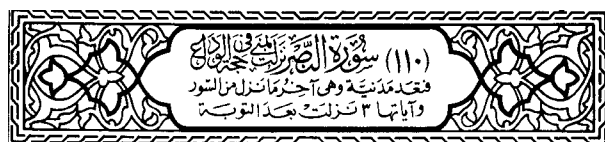 (١١٠) سُورَة النَّصْر نزلت بمنى في حجة الوداع
فتعد مدنية وهى آخر ما نزل من السور
وآياتها ٣ نزلت بعد التوبة